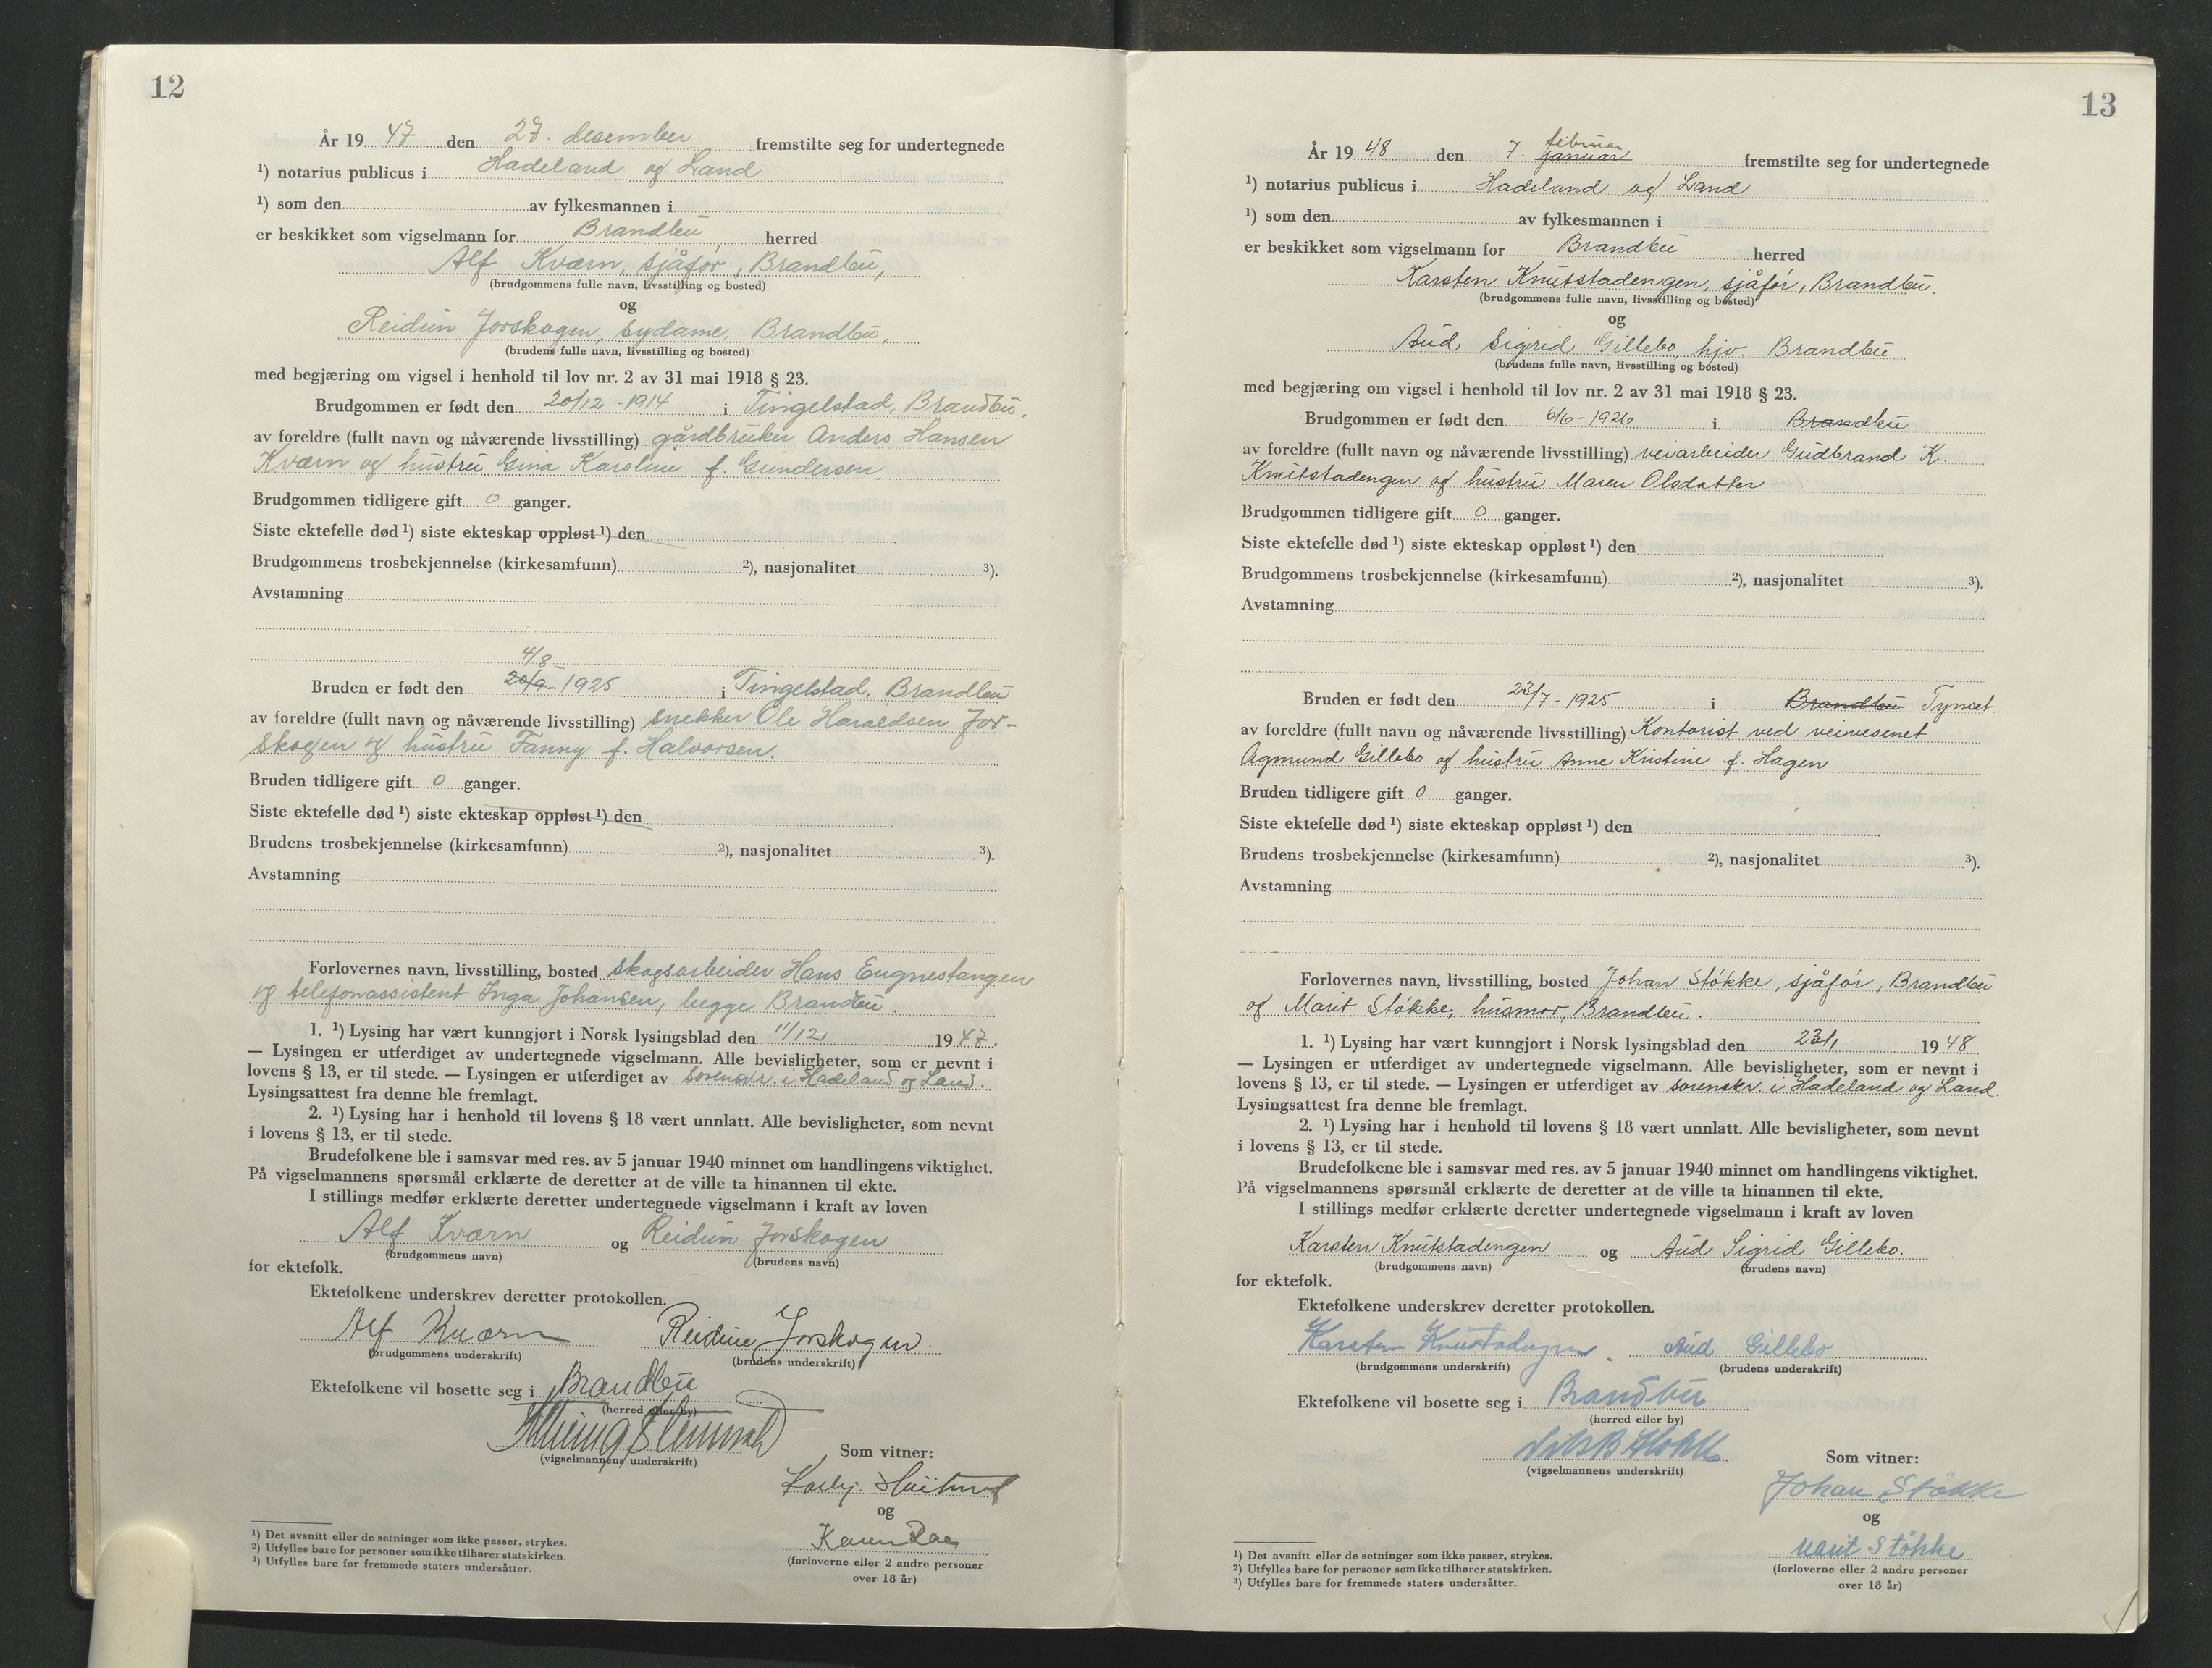 12
År 19 47 den 27. desember fremstilte seg for undertegnede
¹) notarius publicus i Hadeland og Land
¹) som den av fylkesmannen i
er beskikket som vigselmann for Brandbu herred
Alf Kværn, sjåfør, Brandbu,
(brudgommens fulle navn, livsstilling og bosted)
og
Reidun Jorskogen, sydame, Brandbu,
(brudens fulle navn, livsstilling og bosted)
med begjæring om vigsel i henhold til lov nr. 2 av 31 mai 1918 § 23.
Brudgommen er født den 20/12 - 1914 i Tingelstad, Brandbu.
av foreldre (fullt navn og nåværende livsstilling) gårdbruker Anders Hansen
Kværn og hustru Gina Karoline f. Gundersen.
Brudgommen tidligere gift 0 ganger.
Siste ektefelle død ¹) siste ekteskap oppløst ¹) den
Brudgommens trosbekjennelse (kirkesamfunn) ²), nasjonalitet ³).
Avstamning
4/8
Bruden er født den 20/9 - 1925 i Tingelstad, Brandbu
av foreldre (fullt navn og nåværende livsstilling) snekker Ole Haraldsen Jor-
skogen og hustru Fanny f. Halvorsen.
Bruden tidligere gift 0 ganger.
Siste ektefelle død ¹) siste ekteskap oppløst ¹) den
Brudens trosbekjennelse (kirkesamfunn) ²), nasjonalitet ³).
Avstamning
Forlovernes navn, livsstilling, bosted skogsarbeider Hans Eugnestangen
og telefonassistent Inga Johansen, begge Brandbu.
1. ¹) Lysing har vært kunngjort i Norsk lysingsblad den 11/12 19 47.
— Lysingen er utferdiget av undertegnede vigselmann. Alle bevisligheter, som er nevnt i
lovens § 13, er til stede. — Lysingen er utferdiget av sorenskr. i Hadeland og Land.
Lysingsattest fra denne ble fremlagt.
2. ¹) Lysing har i henhold til lovens § 18 vært unnlatt. Alle bevisligheter, som nevnt
i lovens § 13, er til stede.
Brudefolkene ble i samsvar med res. av 5 januar 1940 minnet om handlingens viktighet.
På vigselmannens spørsmål erklærte de deretter at de ville ta hinannen til ekte.
I stillings medfør erklærte deretter undertegnede vigselmann i kraft av loven
Alf Kværn og Reidun Jorskogen
(brudgommens navn) (brudens navn)
for ektefolk.
Ektefolkene underskrev deretter protokollen.
Alf Kværn Reidun Jorskogen.
(brudgommens underskrift) (brudens underskrift)
Ektefolkene vil bosette seg i Brandbu
(herred eller by)
(vigselmannens underskrift)
Som vitner:
og
Karen
(forloverne eller 2 andre personer
over 18 år)
¹) Det avsnitt eller de setninger som ikke passer, strykes.
²) Utfylles bare for personer som ikke tilhører statskirken.
³) Utfylles bare for fremmede staters undersåtter.
13
februar
År 19 48 den 7. januar fremstilte seg for undertegnede
¹) notarius publicus i Hadeland og Land
¹) som den av fylkesmannen i
er beskikket som vigselmann for Brandbu herred
Karsten Knutstadengen, sjåfør, Brandbu.
(brudgommens fulle navn, livsstilling og bosted)
og
Aud Sigrid Gillebo, hjv. Brandbu
(brudens fulle navn, livsstilling og bosted)
med begjæring om vigsel i henhold til lov nr. 2 av 31 mai 1918 § 23.
Brudgommen er født den 6/6 - 1926 i Brandbu
av foreldre (fullt navn og nåværende livsstilling) veiarbeider Gudbrand K.
Knutstadengen og hustru Maren Olsdatter
Brudgommen tidligere gift 0 ganger.
Siste ektefelle død ¹) siste ekteskap oppløst ¹) den
Brudgommens trosbekjennelse (kirkesamfunn) ²), nasjonalitet ³).
Avstamning
Bruden er født den 23/7 - 1925 i Brandbu Tynset.
av foreldre (fullt navn og nåværende livsstilling) Kontorist ved veivesenet
Agmund Gillebo og hustru Anne Kristine f. Hagen
Bruden tidligere gift 0 ganger.
Siste ektefelle død ¹) siste ekteskap oppløst ¹) den
Brudens trosbekjennelse (kirkesamfunn) ²), nasjonalitet ³).
Avstamning
Forlovernes navn, livsstilling, bosted Johan Støkke, sjåfør, Brandbu
og Marit Støkke, husmor, Brandbu.
1. ¹) Lysing har vært kunngjort i Norsk lysingsblad den 23/1 19 48
— Lysingen er utferdiget av undertegnede vigselmann. Alle bevisligheter, som er nevnt i
lovens § 13, er til stede. — Lysingen er utferdiget av sorenskr. i Hadeland og Land.
Lysingsattest fra denne ble fremlagt.
2. ¹) Lysing har i henhold til lovens § 18 vært unnlatt. Alle bevisligheter, som nevnt
i lovens § 13, er til stede.
Brudefolkene ble i samsvar med res. av 5 januar 1940 minnet om handlingens viktighet.
På vigselmannens spørsmål erklærte de deretter at de ville ta hinannen til ekte.
I stillings medfør erklærte deretter undertegnede vigselmann i kraft av loven
Karsten Knutstadengen og Aud Sigrid Gillebo.
(brudgommens navn) (brudens navn)
for ektefolk.
Ektefolkene underskrev deretter protokollen.
Karsten Knutstadengen. Aud Gillebo
(brudgommens underskrift) (brudens underskrift)
Ektefolkene vil bosette seg i Brandbu
(herred eller by)
(vigselmannens underskrift)
Som vitner:
Johan Støkke
og
Marit Støkke
(forloverne eller 2 andre personer
over 18 år)
¹) Det avsnitt eller de setninger som ikke passer, strykes.
²) Utfylles bare for personer som ikke tilhører statskirken.
³) Utfylles bare for fremmede staters undersåtter.